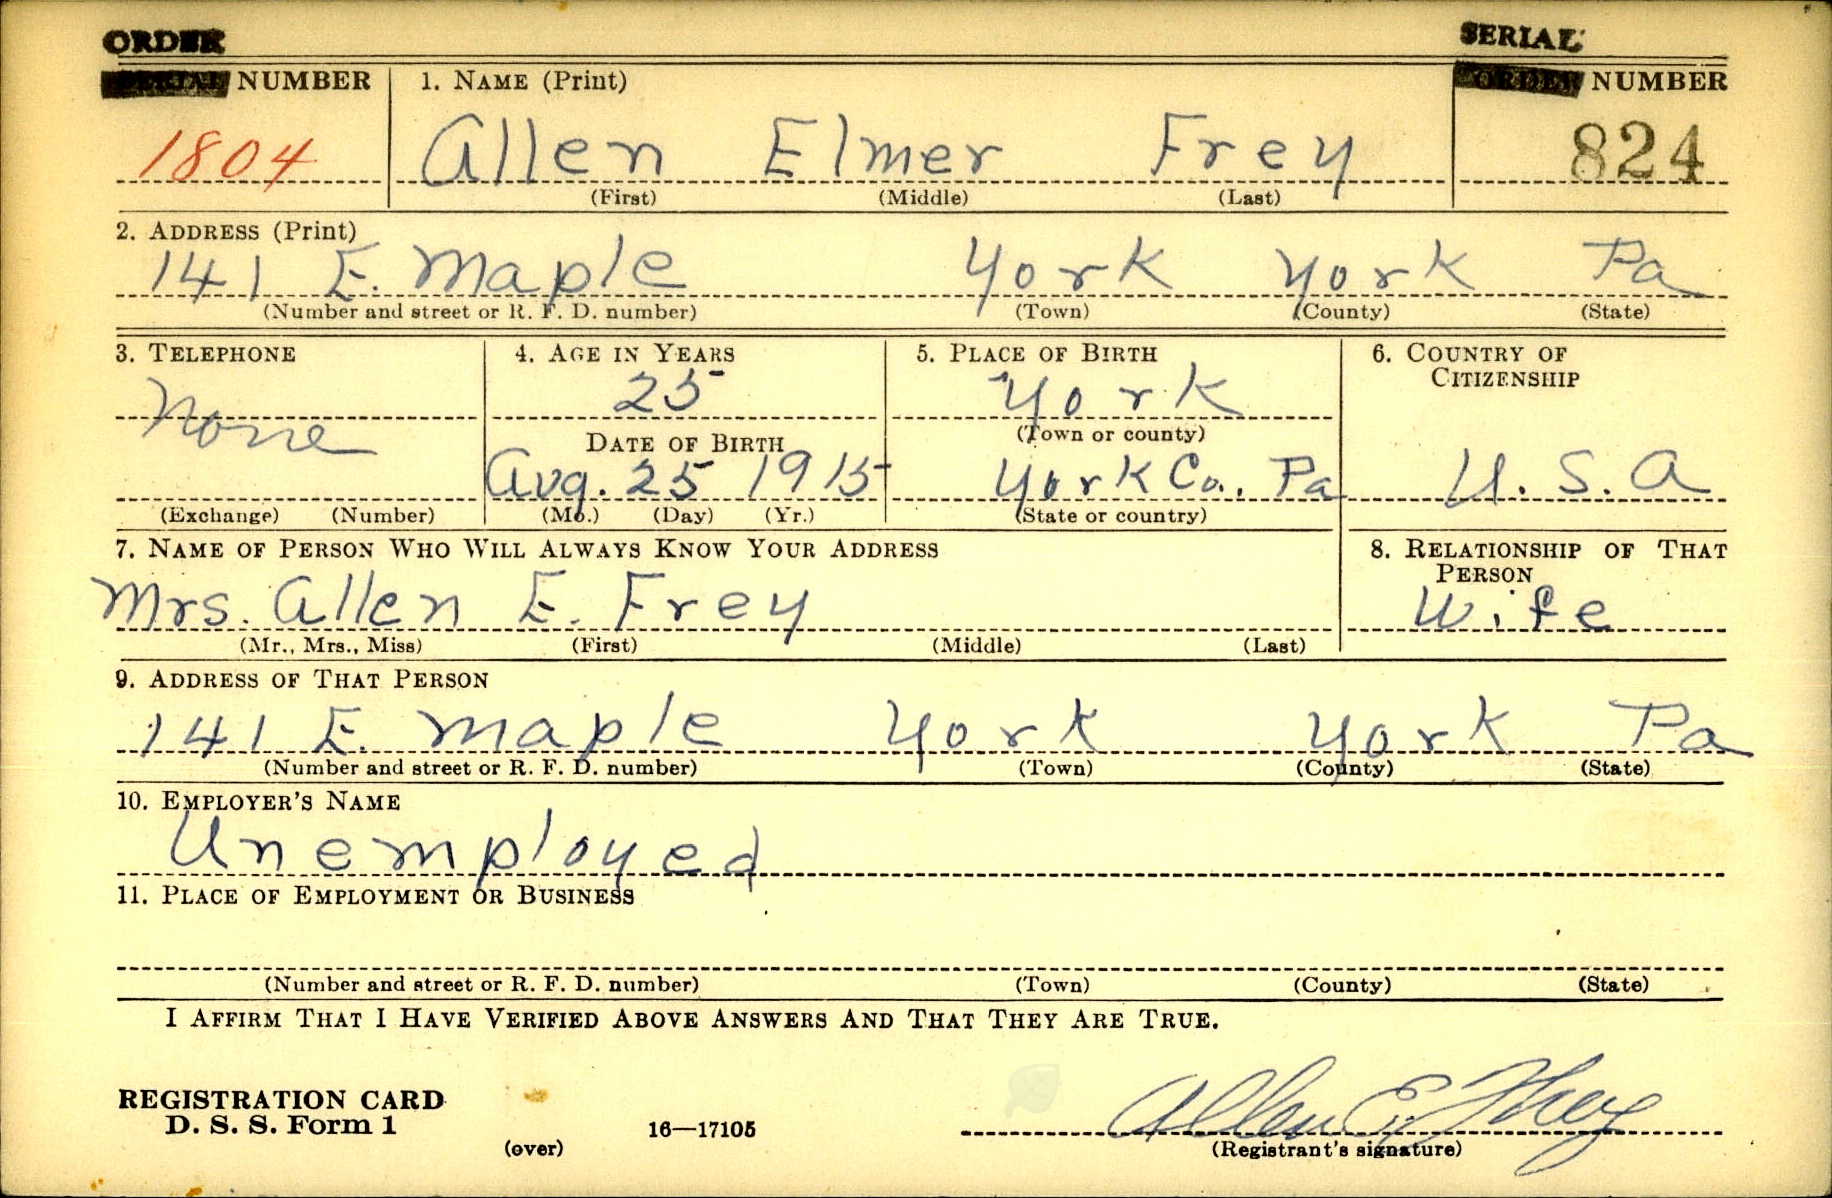 ORDER SERIAL
NUMBER 1. NAME (Print) NUMBER
1804 Allen Elmer Frey 824
(First) (Middle) (Last)
2. ADDRESS (Print)
141 E. Maple York York Pa
(Number and street or R. F. D. number) (Town) (County) (State)
3. TELEPHONE 4. AGE IN YEARS 5. PLACE OF BIRTH 6. COUNTRY OF
CITIZENSHIP
None 25 York
DATE OF BIRTH (Town or county)
Aug. 25 1915 York Co., Pa U. S. A
(Exchange) (Number) (Mo.) (Day) (Yr.) (State or country)
7. NAME OF PERSON WHO WILL ALWAYS KNOW YOUR ADDRESS 8. RELATIONSHIP OF THAT
PERSON
Mrs. Allen E. Frey Wife
(Mr., Mrs., Miss) (First) (Middle) (Last)
9. ADDRESS OF THAT PERSON
141 E. Maple York York Pa
(Number and street or R. F. D. number) (Town) (County) (State)
10. EMPLOYER'S NAME
Unemployed
11. PLACE OF EMPLOYMENT OR BUSINESS
(Number and street or R. F. D. number) (Town) (County) (State)
I AFFIRM THAT I HAVE VERIFIED ABOVE ANSWERS AND THAT THEY ARE TRUE.
REGISTRATION CARD
D. S. S. Form 1 16—17105 Allen E. Frey
(over) (Registrant's signature)